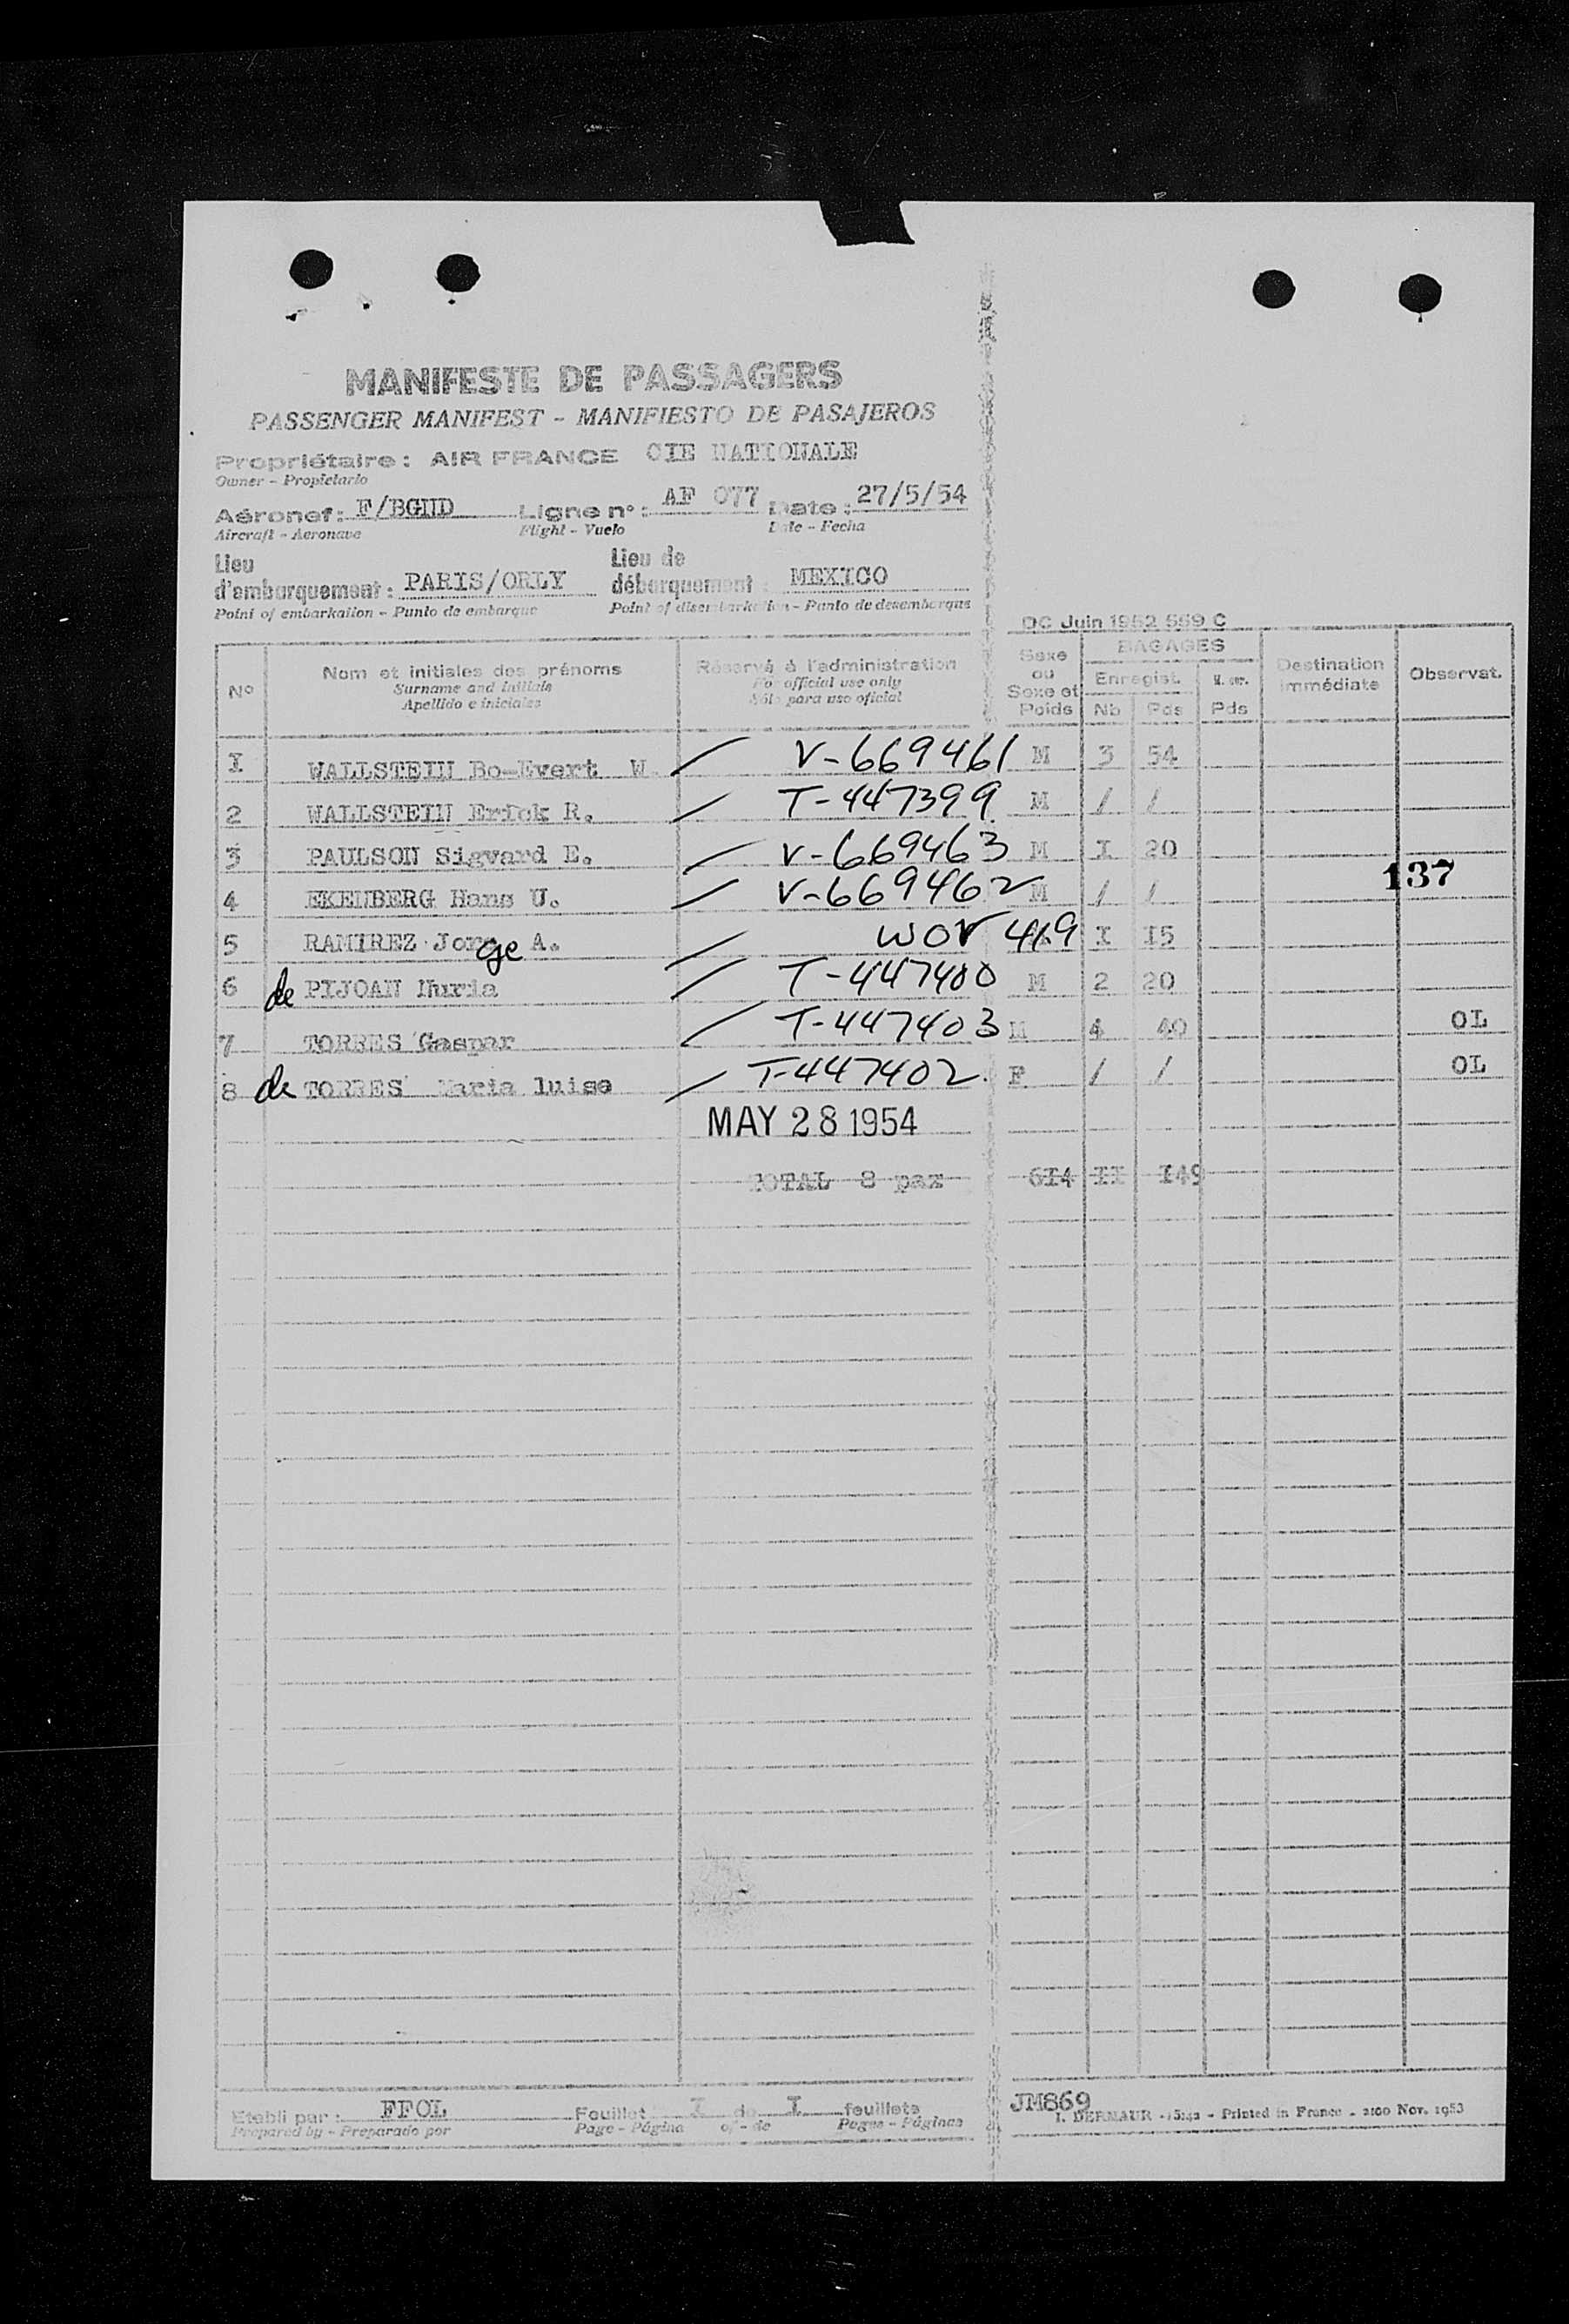 MANIFESTE DE PASSAGERS
PASSENGER MANIFEST - MANIFIESTO DE PASAJEROS
Propriétaire : AIR FRANCE CIE NATIONALE
Owner - Propietario
Aéronef : F/BGND Ligne n° : AF 077 Date : 27/5/54
Aircraft - Aeronave Flight - Vuelo Date - Fecha
Lieu d'embarquement : PARIS/ORLY Lieu de débarquement : MEXICO
Point of embarkation - Punto de embarque Point of disembarkation - Punto de desembarque
DC Juin 1952 559 C
N° Nom et initiales des prénoms Réservé à l'administration Sexe ou Sexe et Poids BAGAGES Enregist. Nb Pds Pds Destination immédiate Observat.
Surname and initials For official use only
Apellido e iniciales Sólo para uso oficial
I WALLSTEIN Bo-Evert W. / V-669461 M 3 54
2 WALLSTEIN Erick R. / T-447399 M / /
3 PAULSON Sigvard E. / V-669463 M I 20
137
4 EKENBERG Hans U. / V-669462 M / /
5 RAMIREZ Jorge A. / WOV 419 I I5
6 de PIJOAN Nuria / T-447400 M 2 20
7 TORRES Gaspar / T-447403 M 4 40 OL
8 de TORRES Maria luise / T-447402 F / / OL
MAY 28 1954
TOTAL 8 pax 6I4 II I49
Etabli par : FFOL Feuillet I de I feuillets
Prepared by - Preparado por Page - Página of - de Pages - Páginas
JM869
I. DERMAUR - Printed in France - 2100 Nov. 1953